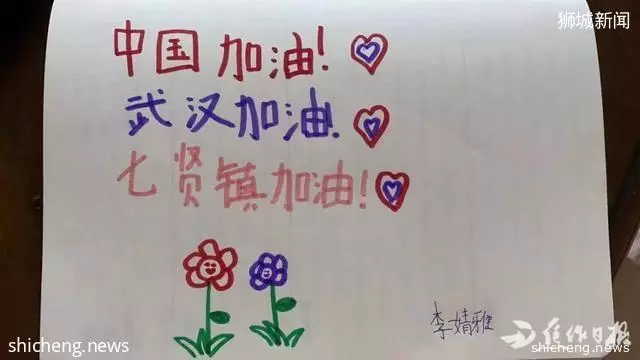 狮城新闻
中国加油!
武汉加油!
七贤镇加油!
李婧雅
焦作日报
shicheng.news
shicheng.news